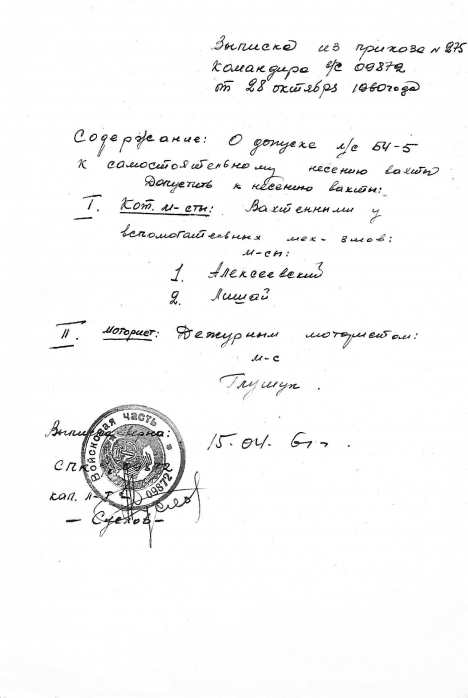 Выписка из приказа № 275
Командира в/с 09872
от 28 октября 1960 года
Содержание: О допуске л/с БЧ-5
к самостоятельному несению вахты
Допустить к несению вахты:
I. Кот. м-сты: Вахтенными у
вспомогательных мех-змов:
м-сы:
1. Алексеевский
2. Лишай
II. моторист: Дежурным мотористом:
м-с
Глущук.
Выписка верна:
15.04.61г.
Войсковая часть
09872
кап. л-т
- Суслов -